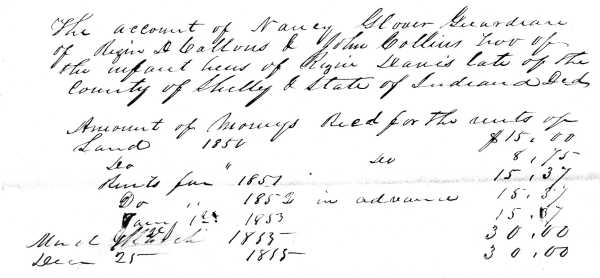 The account of Nancy Glover Guardian
of Rezin D Collins & John Collins two of
the infant heirs of Rezin Davis late of the
County of Shelby & State of Indiana Decd
Amount of moneys Recd for the rents of
Land 1850 $15,00
Do " Do 8,75
Rents for 1851 15,37
Do " 1852 in advance 15,37
1st 1853 15,37
March 1855 30,00
Decm 25 1855 30,00